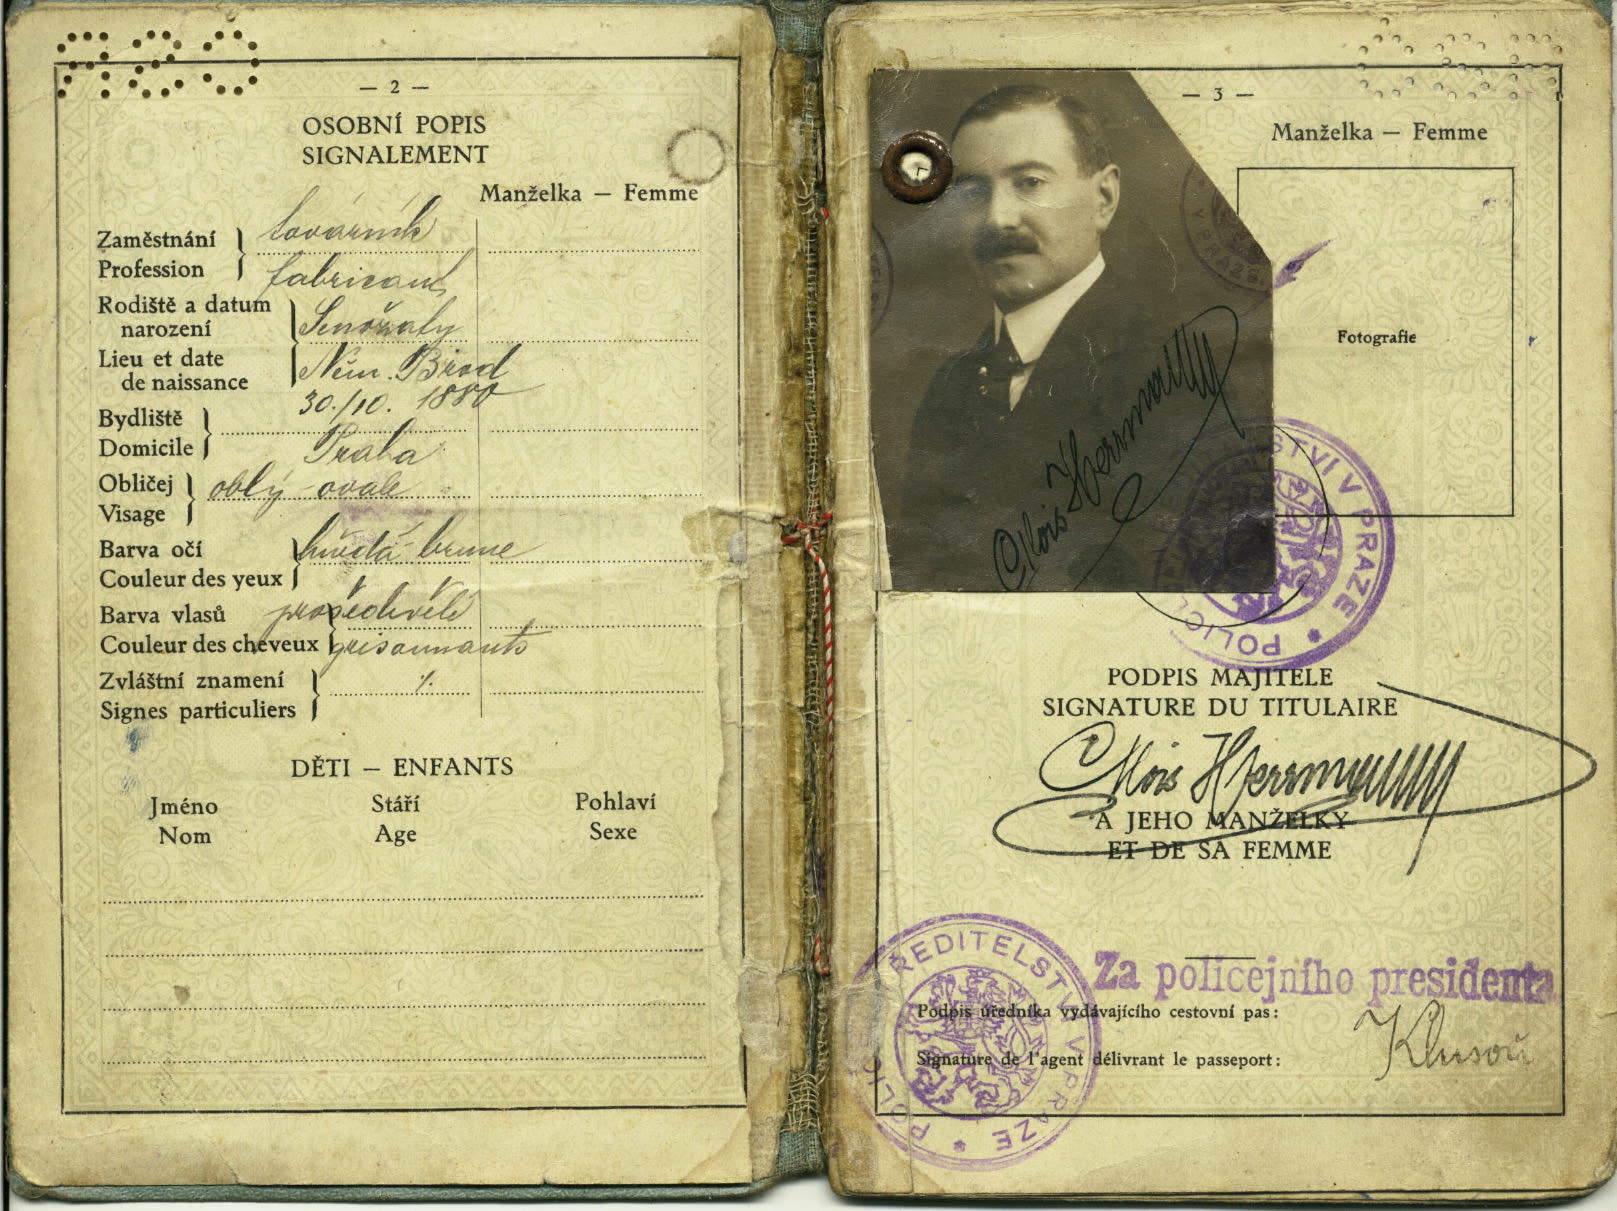 — 2 —
OSOBNÍ POPIS
SIGNALEMENT
Manželka — Femme
Zaměstnání
továrník
Profession
fabricant
Rodiště a datum
narození
Senožaty
Lieu et date
de naissance
Něm. Brod
30./10. 1880
Bydliště
Domicile
Praha
Obličej
Visage
oblý - ovale
Barva očí
Couleur des yeux
hnědá - brune
Barva vlasů
prošedivělé
Couleur des cheveux
grisonnants
Zvláštní znamení
Signes particuliers
DĚTI — ENFANTS
Jméno Stáří Pohlaví
Nom Age Sexe
— 3 —
Manželka — Femme
Fotografie
V PRAZE
Alois Herrmann
POLIC STVÍ V PRAZE *
PODPIS MAJITELE
SIGNATURE DU TITULAIRE
Alois Herrmann
A JEHO MANŽELKY
ET DE SA FEMME
POLIC ŘEDITELSTVÍ V PRAZE *
Za policejního presidenta
Podpis úředníka vydávajícího cestovní pas:
Signature de l'agent délivrant le passeport: